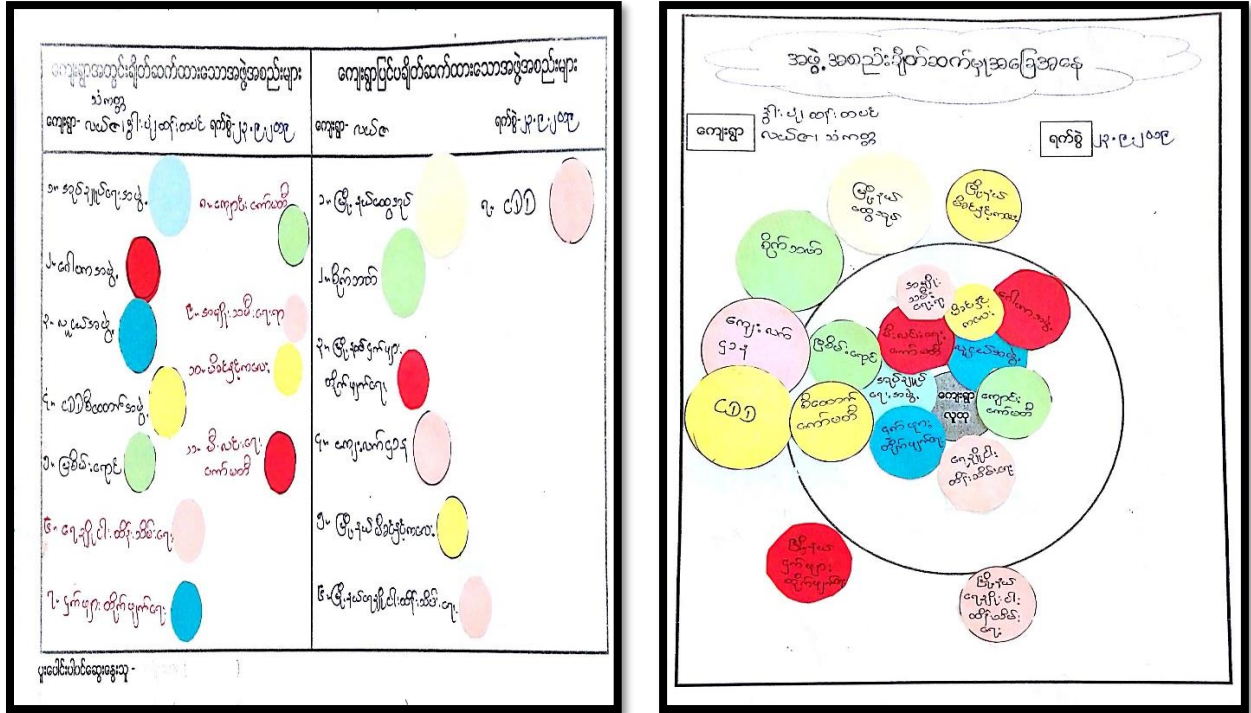 ကျေးရွာအတွင်းချိတ်ဆက်ထားသောအဖွဲ့အစည်းများ
သံကတ္တ
ကျေးရွာ- လယ်ဇ၊ ဒွါး၊ ပျံ့ထန်းတပင် ရက်စွဲ-၂၃.၉.၂၀၁၉
၁။ အုပ်ချုပ်ရေးအဖွဲ့
၂။ ဂေါပကအဖွဲ့
၃။ လူငယ်အဖွဲ့
၄။ CDD စီထောက်အဖွဲ့
၅။ မြစိမ်းရောင်
၆။ ရေချိုငါးထိန်းသိမ်းရေး
၇။ ငှက်ဖျားတိုက်ဖျက်ရေး
၈။ ကျောင်းကော်မတီ
၉။ အမျိုးသမီးရေးရာ
၁၀။ မိခင်နှင့်ကလေး
၁၁။ မီးလင်းရေး
ကော်မတီ
ပူးပေါင်းပါဝင်ဆွေးနွေးသူ -
ကျေးရွာပြင်ပချိတ်ဆက်ထားသောအဖွဲ့အစည်းများ
ကျေးရွာ- လယ်ဇ ရက်စွဲ-၂၃.၉.၂၀၁၉
၁။ မြို့နယ်ထွေအုပ်
၂။ စိုက်ဘဏ်
၃။ မြို့နယ်ငှက်ဖျား
တိုက်ဖျက်ရေး
၄။ ကျေးလက်ဌာန
၅။ မြို့နယ်မိခင်နှင့်ကလေး
၆။ မြို့နယ်ရေချိုငါးထိန်းသိမ်းရေး
၇။ CDD
အဖွဲ့အစည်းချိတ်ဆက်မှုအခြေအနေ
ကျေးရွာ
ဒွါး၊ ပျံ့ထန်းတပင်
လယ်ဇ၊ သံကတ္တ
ရက်စွဲ ၂၃.၉.၂၀၁၉
မြို့နယ်
ထွေအုပ်
မြို့နယ်
မိခင်နှင့်ကလေး
စိုက်ဘဏ်
အမျိုး
သမီး
ရေးရာ
မိခင်နှင့်
ကလေး
ဂေါပကအဖွဲ့
ကျေးလက်
ဌာန
မြစိမ်းရောင်
မီးလင်းရေး
ကော်မတီ
လူငယ်အဖွဲ့
CDD
စီထောက်
ကော်မတီ
အုပ်ချုပ်
ရေးအဖွဲ့
ကျေးရွာ
လူထု
ကျောင်း
ကော်မတီ
ငှက်ဖျား
တိုက်ဖျက်ရေး
ရေချိုငါး
ထိန်းသိမ်းရေး
မြို့နယ်
ငှက်ဖျား
တိုက်ဖျက်ရေး
မြို့နယ်
ရေချိုငါး
ထိန်းသိမ်း
ရေး